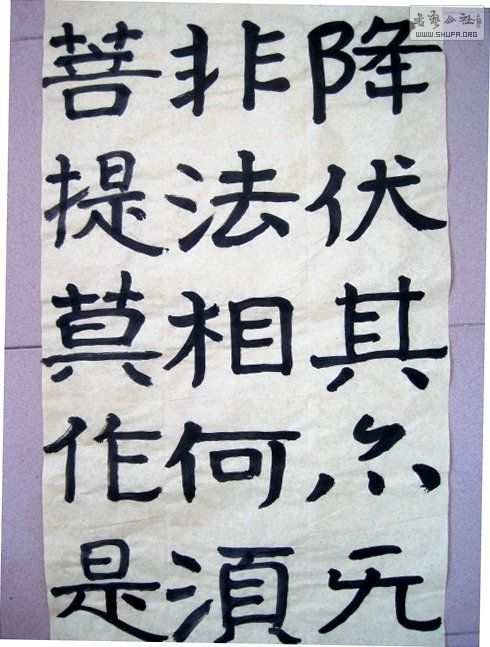 降伏其亦无
非法相何湏
菩提莫作是
书艺公社
WWW.SHUFA.ORG